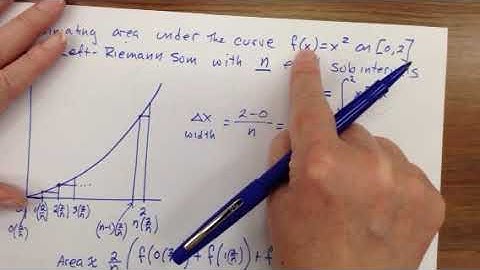 area under the curve f(x) = x² on [0,2]
Left-Riemann Sum with n subintervals
Δx = (2-0)/n = = ∫
width
0(2/n) 1(2/n) 2(2/n) 3(2/n) ... (n-1)(2/n) n(2/n)
2
Area ≈ 2/n (f(0(2/n)) + f(1(2/n)) + f